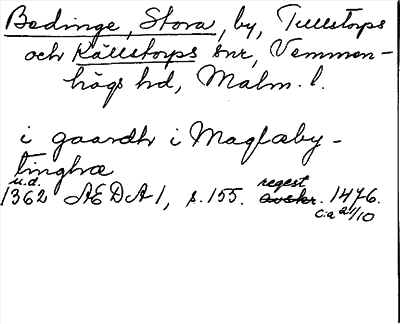 Bedinge, Stora, by, Tullstorps
och Källstorps snr, Vemmen-
högs hd, Malm. l.
i gaardh i Magläby-
tinghæ
u.d.
1362 ÆDA 1, s. 155. regest avskr. 1476.
c:a 21/10